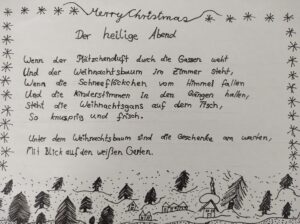 Merry Christmas
Der heilige Abend
Wenn der Plätzchenduft duch die Gassen weht
Und der Weihnachtsbaum im Zimmer steht,
Wenn die Schneeflöckchen vom Himmel fallen
Und die Kinderstimmen in den Gängen hallen,
Steht die Weihnachtsgans auf dem Tisch,
So knusprig und frisch.
Unter dem Weihnachtsbaum sind die Geschenke am warten,
Mit Blick auf den weißen Garten.